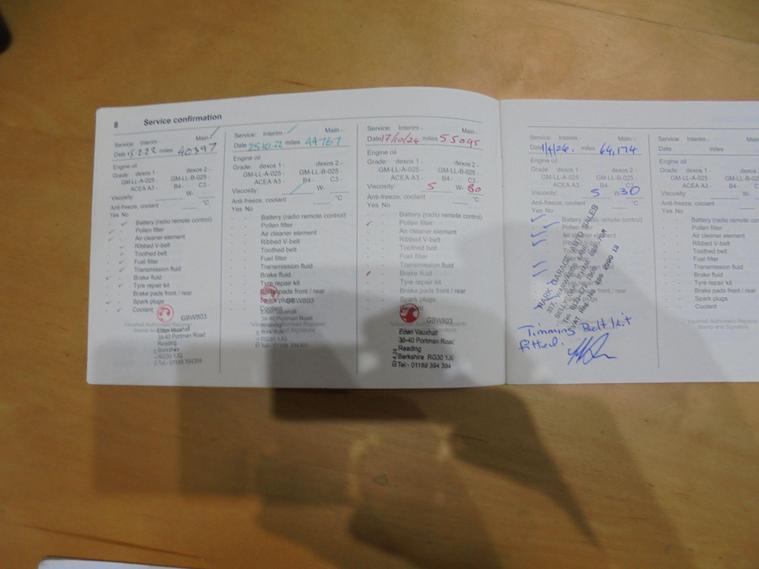 8 Service confirmation
Service: Interim - Main -
Date 15.2.22 miles 40397
Engine oil
Grade: dexos 1 - dexos 2 -
GM-LL-A-025 - GM-LL-B-025 -
ACEA A3 - B4 - C3 -
Viscosity: W-
Anti-freeze, coolant °C
Yes No
Battery (radio remote control)
Pollen filter
Air cleaner element
Ribbed V-belt
Toothed belt
Fuel filter
Transmission fluid
Brake fluid
Tyre repair kit
Brake pads front / rear
Spark plugs
Coolant
Eden Vauxhall
38-40 Portman Road
Reading
Berkshire
RG30 1JG
Service: Interim - Main -
Date 25.10.22 miles 44767
Engine oil
Grade: dexos 1 - dexos 2 -
GM-LL-A-025 - GM-LL-B-025 -
ACEA A3 - B4 - C3 -
Viscosity: W-
Anti-freeze, coolant °C
Yes No
Battery (radio remote control)
Pollen filter
Air cleaner element
Ribbed V-belt
Toothed belt
Fuel filter
Transmission fluid
Brake fluid
Tyre repair kit
GBW803
38-40 Portman Road
Service: Interim - Main -
Date 17/10/24 miles 55095
Engine oil
Grade: dexos 1 - dexos 2 -
GM-LL-A-025 - GM-LL-B-025 -
ACEA A3 - B4 - C3 -
Viscosity: 5 W- 30
Anti-freeze, coolant °C
Yes No
Battery (radio remote control)
Pollen filter
Air cleaner element
Ribbed V-belt
Toothed belt
Fuel filter
Transmission fluid
Brake fluid
Tyre repair kit
Brake pads front / rear
Spark plugs
Coolant
GBW803
Eden Vauxhall
38-40 Portman Road
Reading
Berkshire RG30 1JG
Tel:- 01189 394 394
Service: Interim - Main -
Date 1/4/26. miles 64,174
Engine oil
Grade: dexos 1 - dexos 2 -
GM-LL-A-025 - GM-LL-B-025 -
ACEA A3 - B4 - C3 -
Viscosity: 5 W- 30
Anti-freeze, coolant °C
Yes No
Battery (radio remote control)
Pollen filter
Timming Belt kit
fitted.
Service: Interim - Main -
Date miles
Engine oil
Grade: dexos 1 -
GM-LL-A-025 - GM-LL-B-025 -
ACEA A3 - B4 -
Viscosity: W-
Anti-freeze, coolant
Yes No
Battery (radio remote control)
Pollen filter
Air cleaner element
Ribbed V-belt
Toothed belt
Fuel filter
Transmission fluid
Brake fluid
Tyre repair kit
Brake pads front / rear
Spark plugs
Coolant